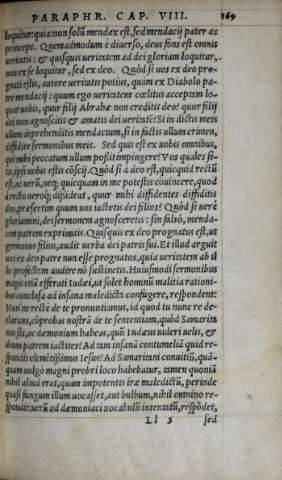 PARAPHR. CAP. VIII. 169
loquitur: quia non solũ mendax est, sed mendacij pater ac
princeps. Quemadmodum è diuerso, deus fons est omnis
ueritatis: & quisquis ueritatem ad dei gloriam loquitur,
non ex se loquitur, sed ex deo. Quòd si uos ex deo pro-
gnati estis, autore ueritatis potius, quàm ex Diabolo pa-
tre mendacij: quum ego ueritatem cœlitus acceptam lo-
quar uobis, quur filij Abrahæ non creditis deo? quur filij
dei non agnoscitis & amatis dei ueritatẽ? Si in dictis meis
ullum deprehenditis mendacium, si in factis ullum crimen,
diffidite sermonibus meis. Sed quis est ex uobis omnibus,
qui mihi peccatum ullum possit impingere? Vos quales si-
tis, ipsi uobis estis cõscij. Quòd si à deo est, quicquid rectũ
est, ac uerũ, neq; quicquam in me potestis cõuincere, quod
à recto ueroq; dissideat, quur mihi diffidentes diffiditis
deo, præsertim quum uos iactetis dei filios? Quòd si uerè
gloriamini, dei sermonem agnosceretis: sin falsò, menda-
cem patrem exprimitis. Quisquis ex deo prognatus est, ut
germanus filius, audit uerba dei patris sui. Et illud arguit
uos ex deo patre non esse prognatos, quia ueritatem ab il
lo profectam audire nõ sustinetis. Huiusmodi sermonibus
magis etiã efferati Iudæi, ut solet hominũ malitia rationi-
bus conclusa ad insana maledicta confugere, respondent:
Non'ne rectè de te pronuntiamus, id quod tu nunc re de-
claras, cõprobas nostrã de te sententiam, quòd Samarita
nus sis, ac dæmonium habeas, quũ Iudæus uideri uelis, &
deum patrem iactites? Ad tam insanã contumeliã quid re-
spondit clemẽtissimus Iesus? Ad Samaritani conuitiũ, quã-
quam uulgò magni probri loco habebatur, tamen quoniã
nihil aliud erat, quàm impotentis iræ maledictũ, perinde
quasi fungum illum uocasset, aut bulbum, nihil omnino re-
spondit: uerũ ad dæmoniaci uocabulũ intentatũ, respõdet,
Ll 5 sed